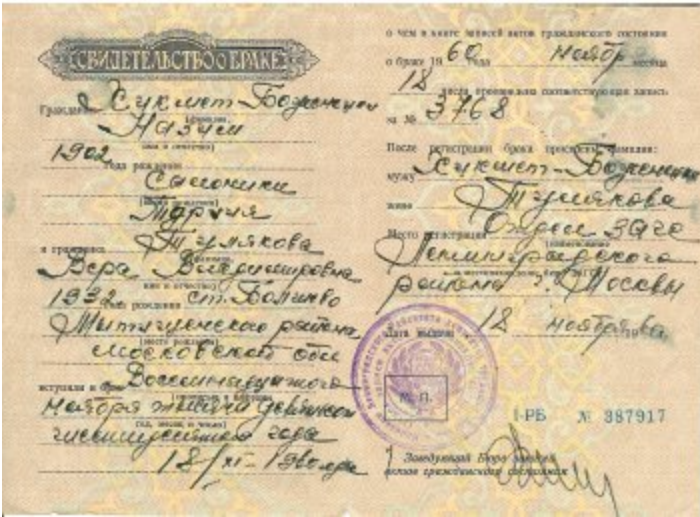 СВИДЕТЕЛЬСТВО О БРАКЕ
Гражданин Хикмет-Борженски
(фамилия,
Назым
имя и отчество)
1902 года рождения
Салоники
(место рождения)
Турция
и гражданка Тулякова
(фамилия,
Вера Владимировна
имя и отчество)
1932 года рождения ст. Болшево
Мытищенского района,
(место рождения)
Московской обл
вступили в брак Восемнадцатого
ноября тысяча девятьсот
(год, месяц и число)
шестидесятого года
18/XI-1960 года
о чем в книге записей актов гражданского состояния
о браке 1960 года ноябр месяца
18 числа произведена соответствующая запись
за № 3768
После регистрации брака присвоены фамилии:
мужу Хикмет-Борженски
жене Тулякова
Место регистрации Отдел ЗАГС
(наименование
Ленинградского
района г. Москвы
Дата выдачи 18 ноября 1960 г.
М. П.
I-РБ № 387917
Заведующий Бюро записей
актов гражданского состояния